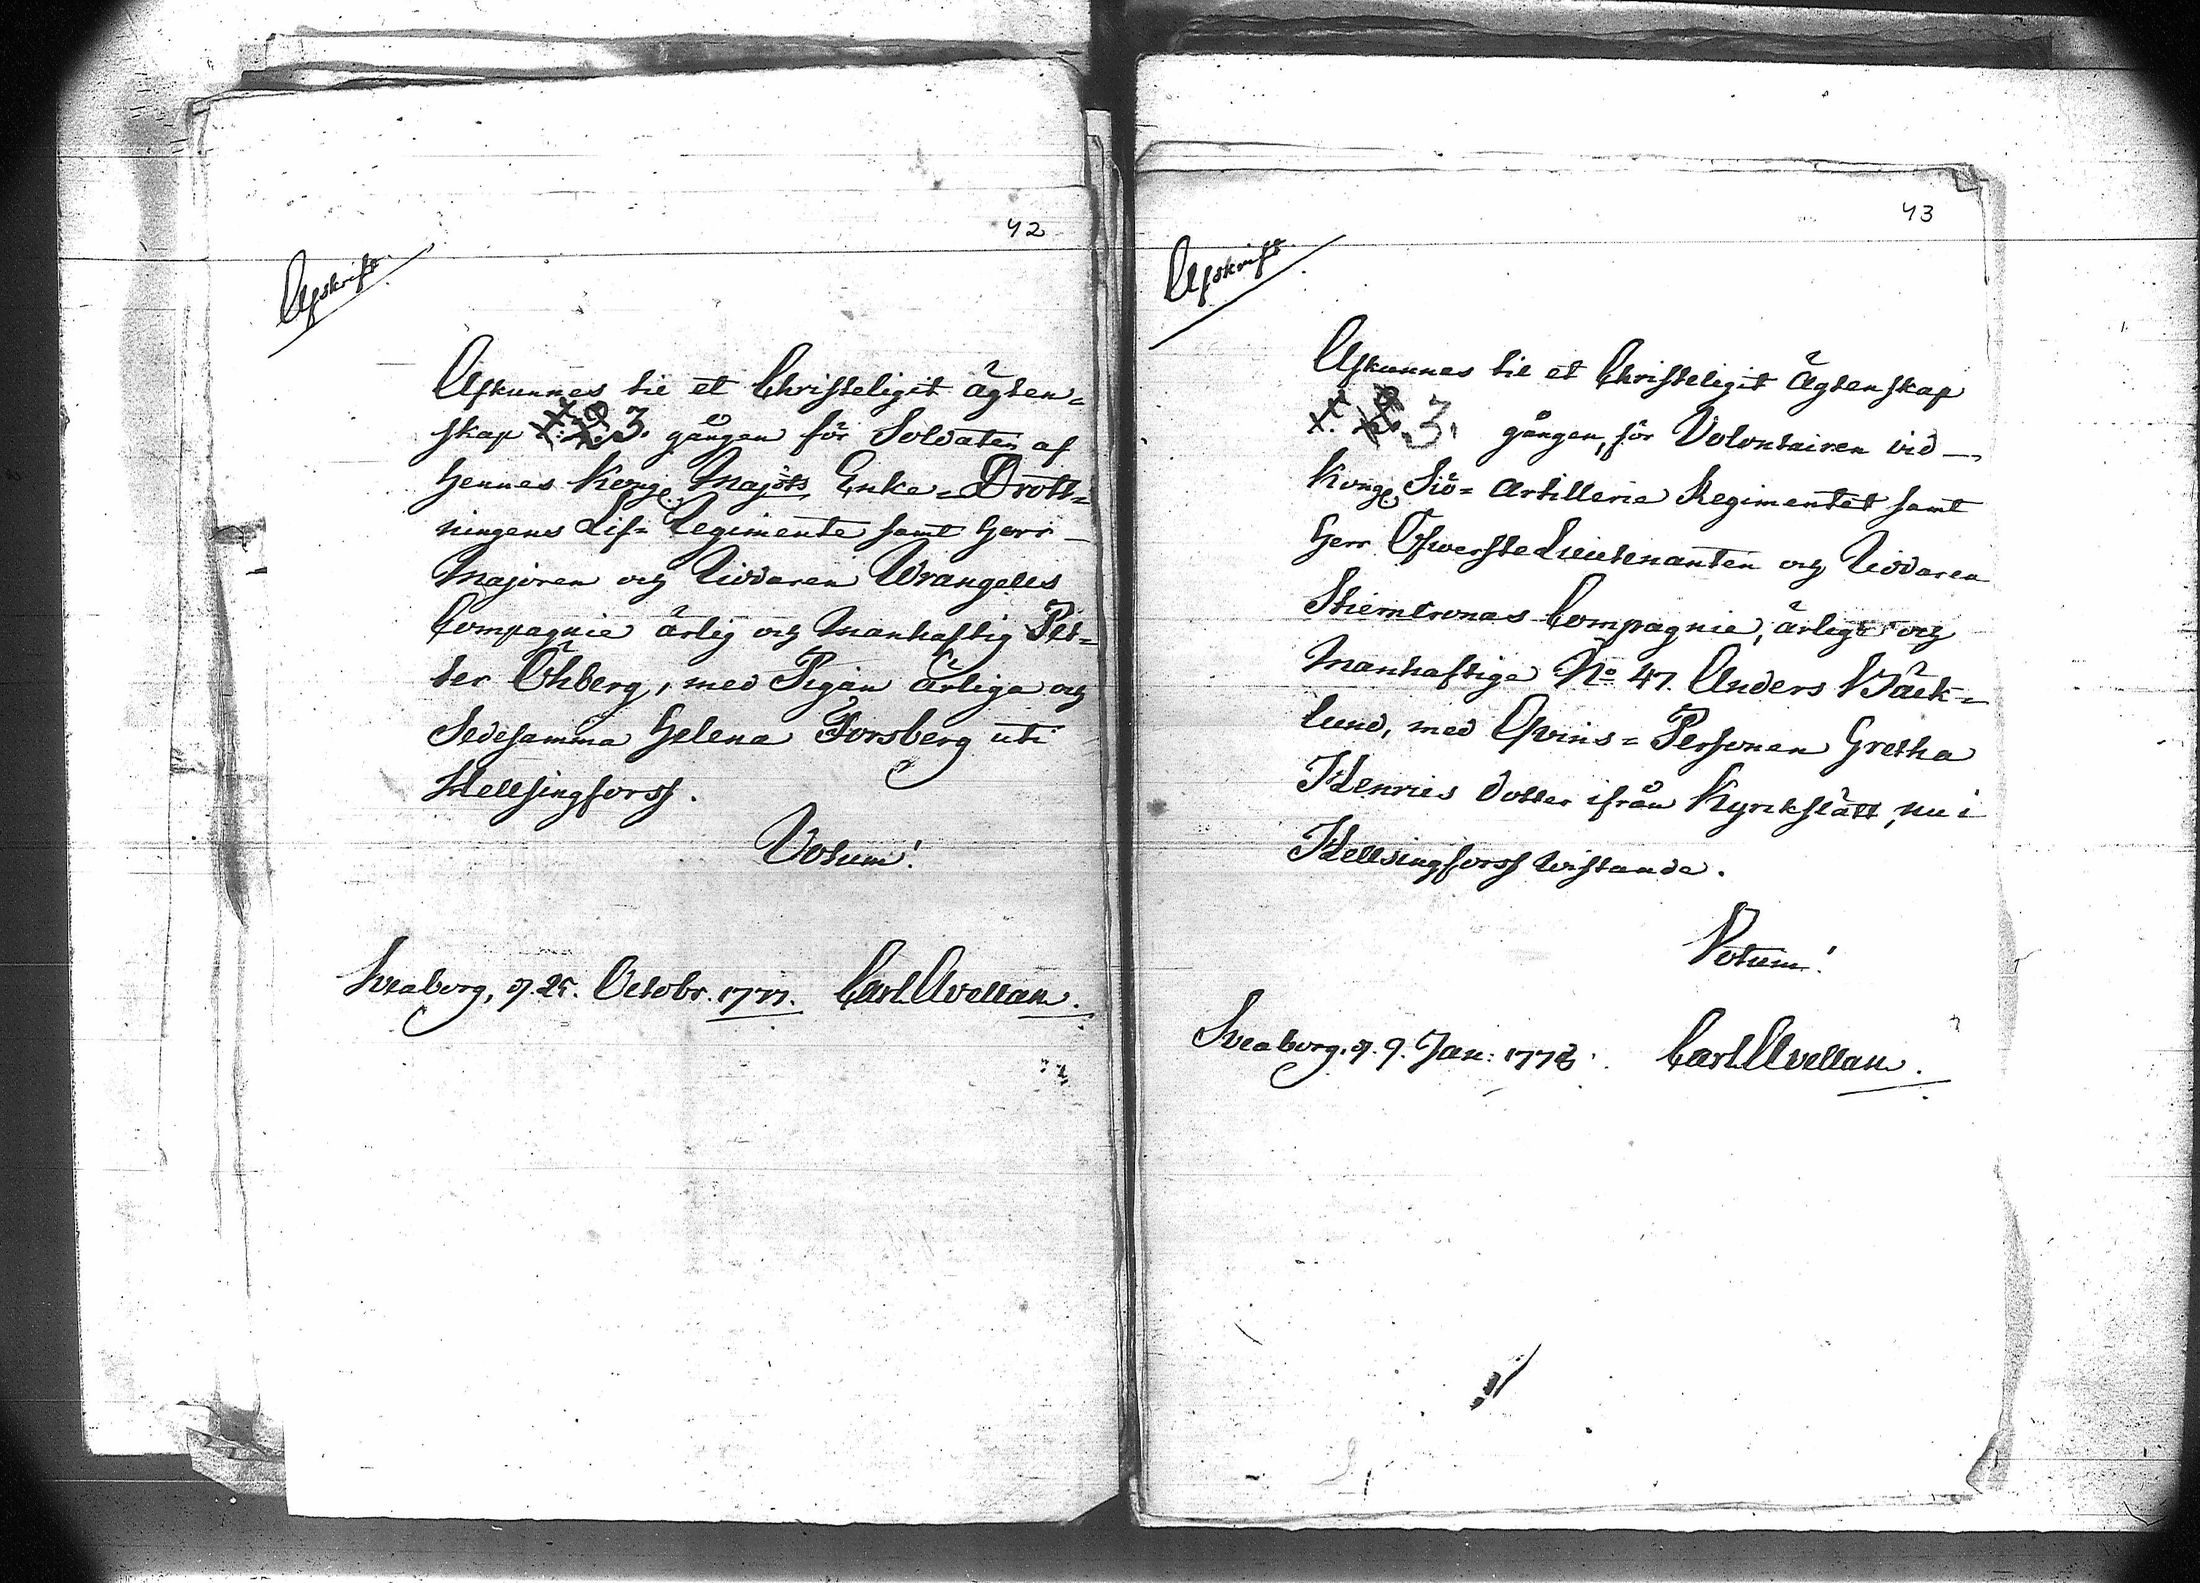 42
Afskrift.
Afkunnes til et Christeligit Ägten-
skap 1. 2. 3. gången för Soldaten af
Hennes Kongl. Maj:tts Enke-Drott-
ningens Lif-Regimente samt Herr
Majoren och Riddaren Wrangells
Compagnie ärlig och Manhaftig Pet-
ter Öhberg, med Pigan Ärliga och
Sedesamma Helena Forsberg uti
Hellsingforss.
Votum!
Sveaborg, d. 25. Octobr. 1777. Carl Avellan.
43
Afskrift.
Afkunnes til et Christeligit Ägtenskap
1. 2. 3. gången, för Volontairen vid
Kongl. Siö-Artillerie Regimentet samt
Herr Öfwerste Lieutenanten och Riddaren
Stierncronas Compagnie, ärlige och
Manhaftige No 47. Anders Bäck-
lund, med Qvins-Personen Gretha
Henrics dotter ifrån Kyrkslätt, nu i
Hellsingforss wistande.
Votum!
Sveaborg, d. 9. Jan: 1778. Carl Avellan.